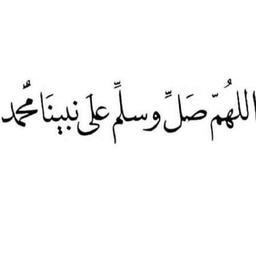 اللهُمّ صَلِّ وسلِّم علَى نبينَا محُمد